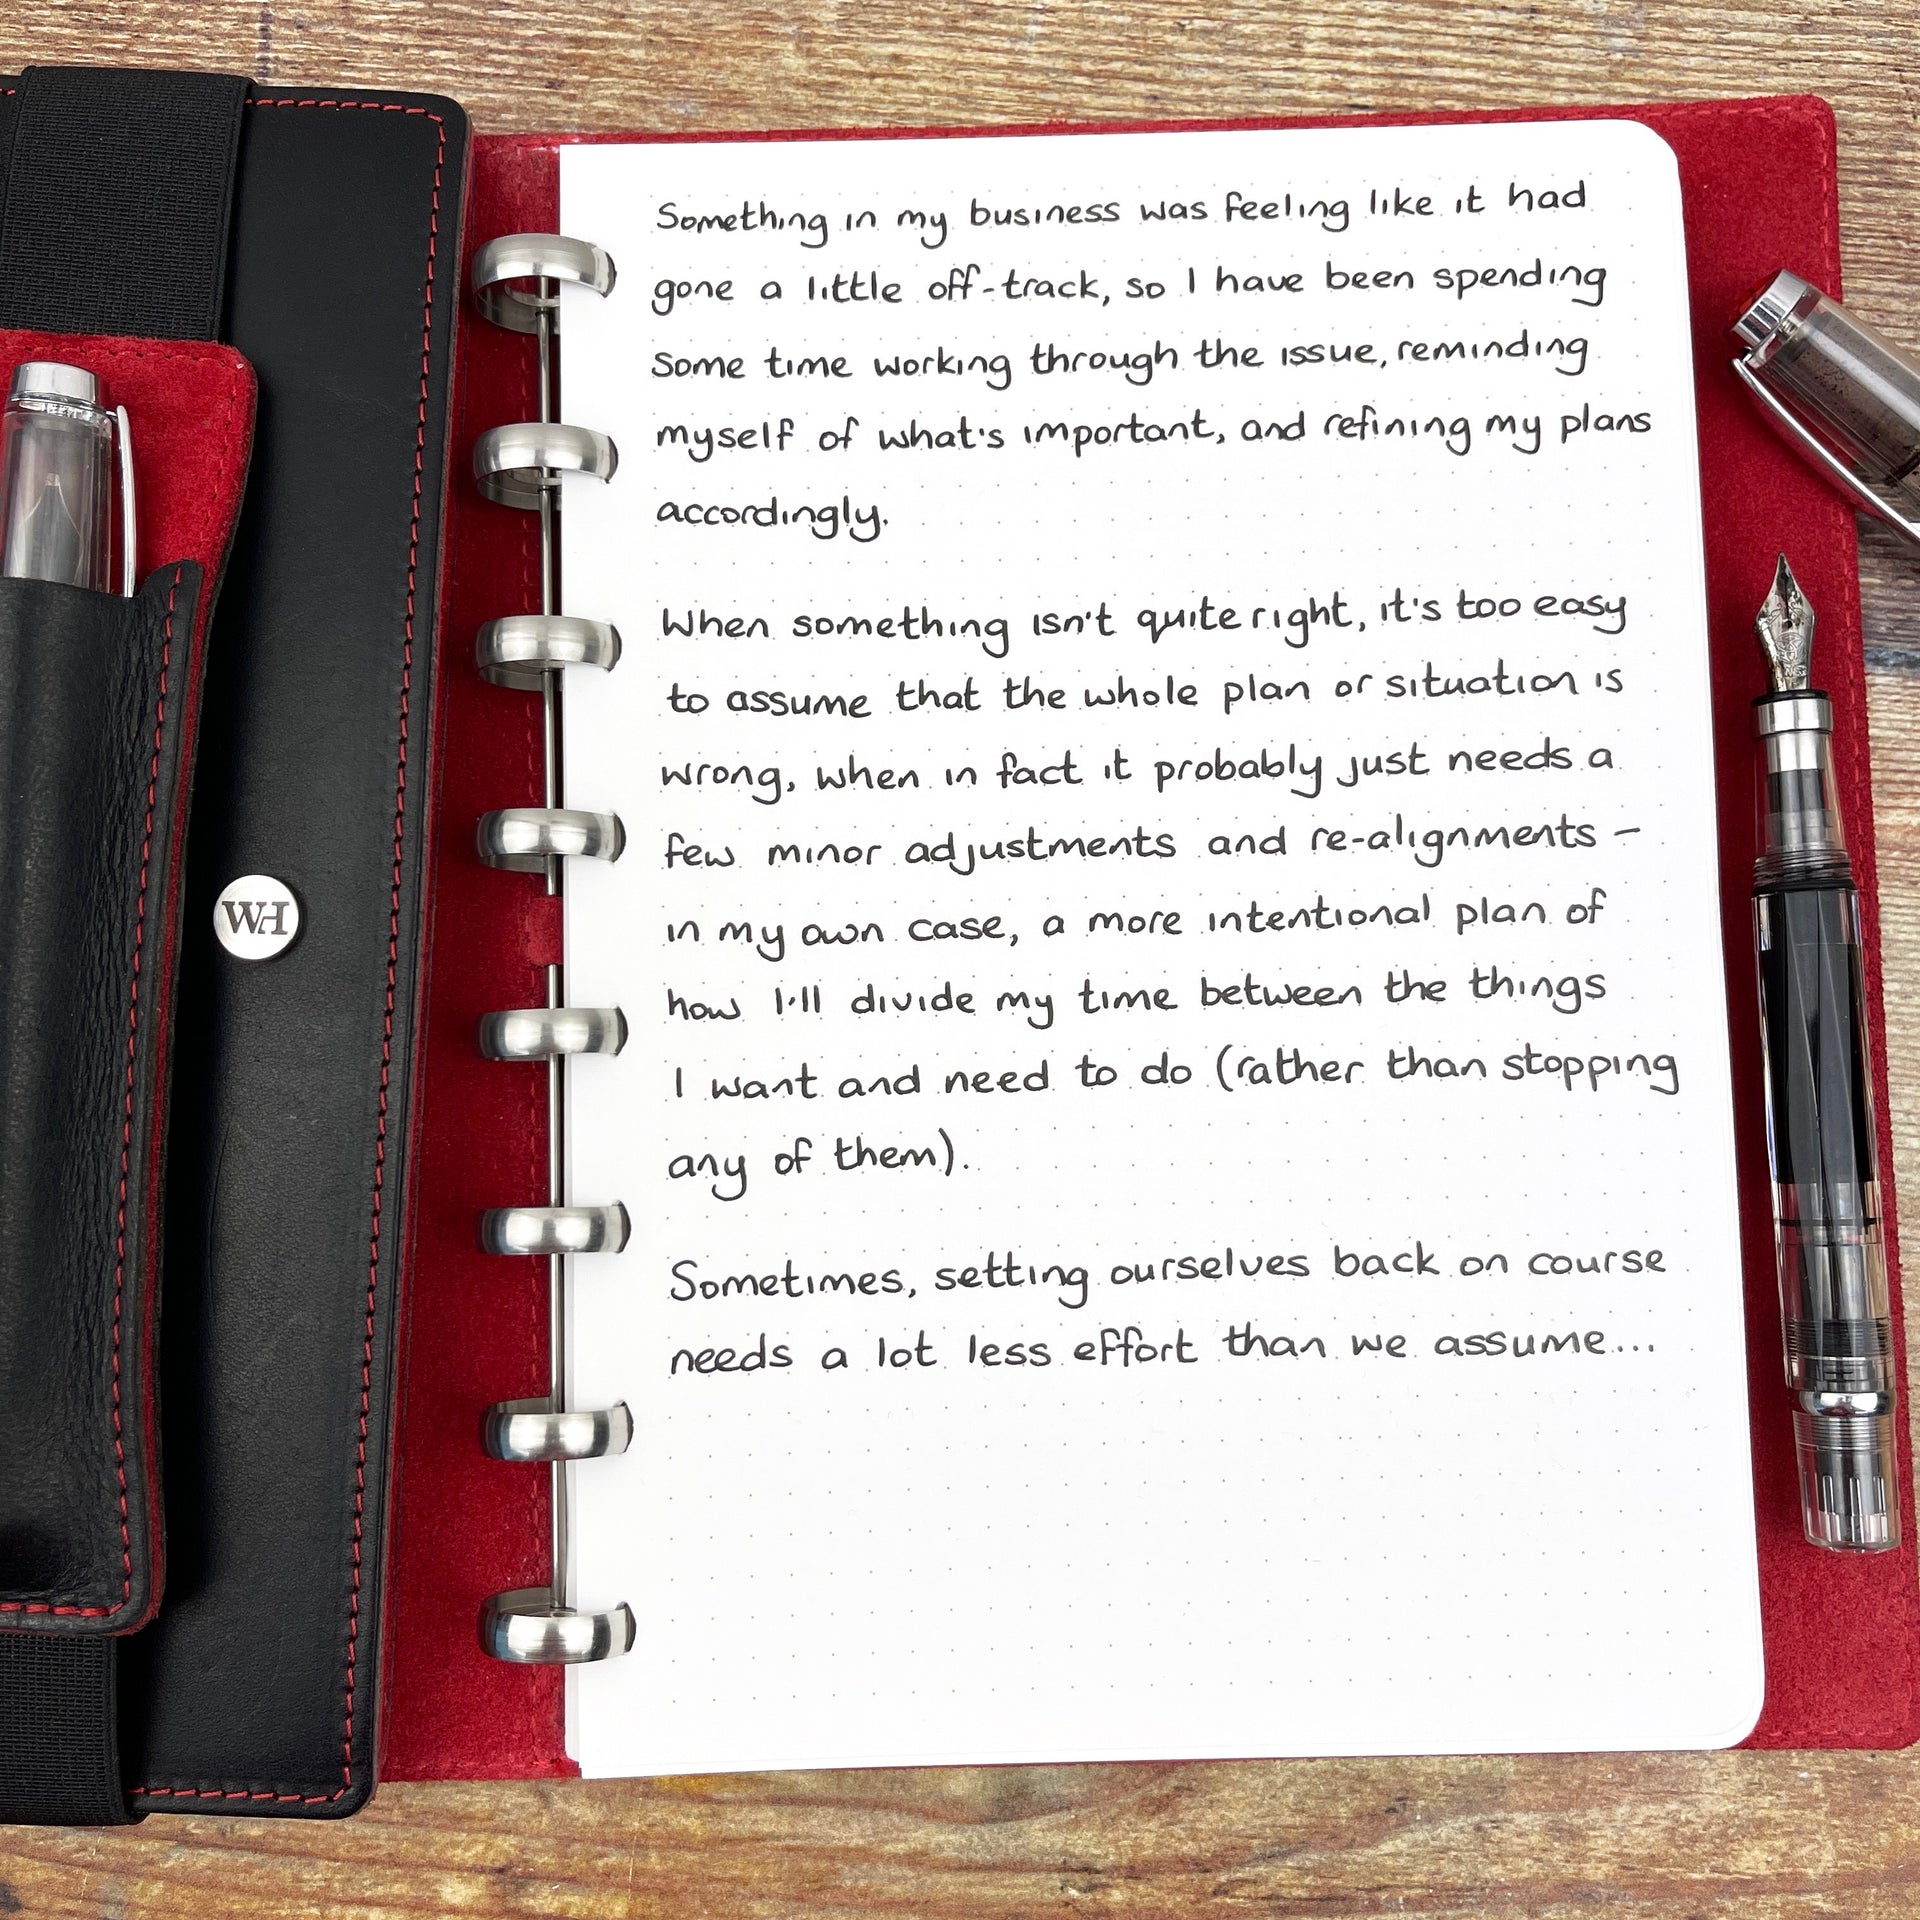 Something in my business was feeling like it had
gone a little off-track, so I have been spending
some time working through the issue, reminding
myself of what's important, and refining my plans
accordingly.
When something isn't quite right, it's too easy
to assume that the whole plan or situation is
wrong, when in fact it probably just needs a
few minor adjustments and re-alignments –
in my own case, a more intentional plan of
how I'll divide my time between the things
I want and need to do (rather than stopping
any of them).
Sometimes, setting ourselves back on course
needs a lot less effort than we assume...
WH